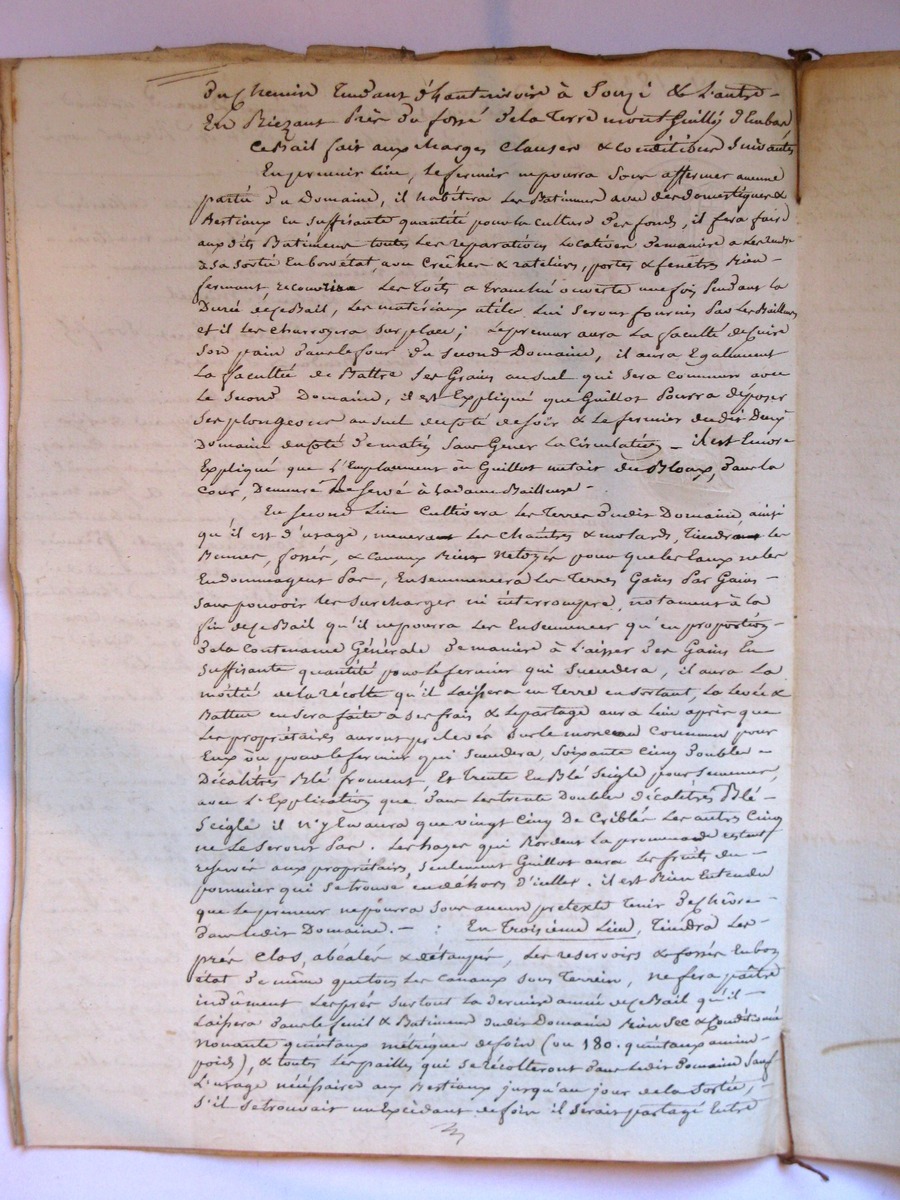 du chemin tendant d'hauterivoire à Souzi & l'autre
En Biezant Près du fossé de la Terre mont Guilly d'Embas
Ce Bail fait aux charges clauses & conditions suivantes
En premier Lieu, Le fermier ne pourra sous affermer aucune
partie du Domaine, il habitera Les Batimens avec des domestiques &
Bestiaux En suffisante quantité pour la culture des fonds, il fera faire
aux dits Batimens toutes Les reparations Locatives de maniere a les rendre
à sa sortie En bon état, avec Créches & rateliers, portes & fenêtres Bien
fermant, recouvrira Les Toits a Tranché ouverte une fois pendant la
Durée de ce Bail, Les matériaux utiles Lui seront fournis Par Les Bailleurs
et il Les charroyera sur place; Le preneur aura La faculté de cuire
Son pain dans le four du second Domaine, il aura Egallement
La faculté de Battre Ses Grains au suel qui sera commun avec
Le second Domaine, il est Expliqué que Guillot Pourra déposer
Ses plongeons au suel du coté de soir & Le fermier du dit Deux.
Domaine du coté de matin Sans Gener La Circulation – il est Encore
Expliqué que L'Emplacement où Guillot metait des Bloux, dans La
Cour, Demeure Reservé à Madame Bailleuse –
En second Lieu Cultivera Les Terres du dit Domaine, ainsi
qu'il est d'usage, menera Les Chaintes & molards, Tiendra Les
Bennes, fossés, & Canaux Bien Netoyés pour que les Eaux ne les
Endommagent Pas, Ensemmencera Les Terres Gains Par Gains –
Sans pouvoir les surcharger ni interrompre, notament à la
fin de ce Bail qu'il ne pourra Les Ensemencer qu'en proportion
de la Contenance Générale de maniere à Laisser des Gains En
Suffisante quantité pour le fermier qui succedera, il aura La
moitié de la récolte qu'il Laissera en Terre en sortant, La Levée &
Batture en sera faite a ses frais & Le partage aura Lieu après que
Les propriétaires auront prélevés sur le monceau Commun pour
Eux ou pour le fermier qui succedera, Soixante Cinq Doubles –
Décalitres Blé froment, Et Trente En Blé Seigle pour semence,
avec L'Explication que, dans Les trente Doubles décalitres Blé –
Seigle il n'y En aura que vingt Cinq De Criblés Les autres Cinq
ne Le Seront Pas. Les hayes qui Bordent La promenade restent
reservée aux propriétaires, seulement Guillot aura Les fruits du –
pommier qui Se trouve en déhors d'icelles. il est Bien Entendu
que Le preneur ne pourra sous aucun pretexte Tenir des chèvres
dans le dit Domaine. – : En Troisieme Lieu, Tiendra Les
prés Clos, abéalés & détaupés, Les reservoirs & fossés En bon
état de même que tous Les Canaux sous Terrein, ne fera paître
induement Les prés surtout La derniere année de ce Bail qu'il –
Laissera dans le fenil & Batiment du dit Domaine Bien Sec & Conditionné
Nonante quintaux métriques de foin (ou 180. quintaux ancien
poids), & toutes Les pailles qui Se récolteront dans le dit Domaine Sauf
L'usage nécéssaire aux Bestiaux jusqu'au jour de la Sortie, –
S'il Se trouvait un Excédant de foin il serait partagé Entre